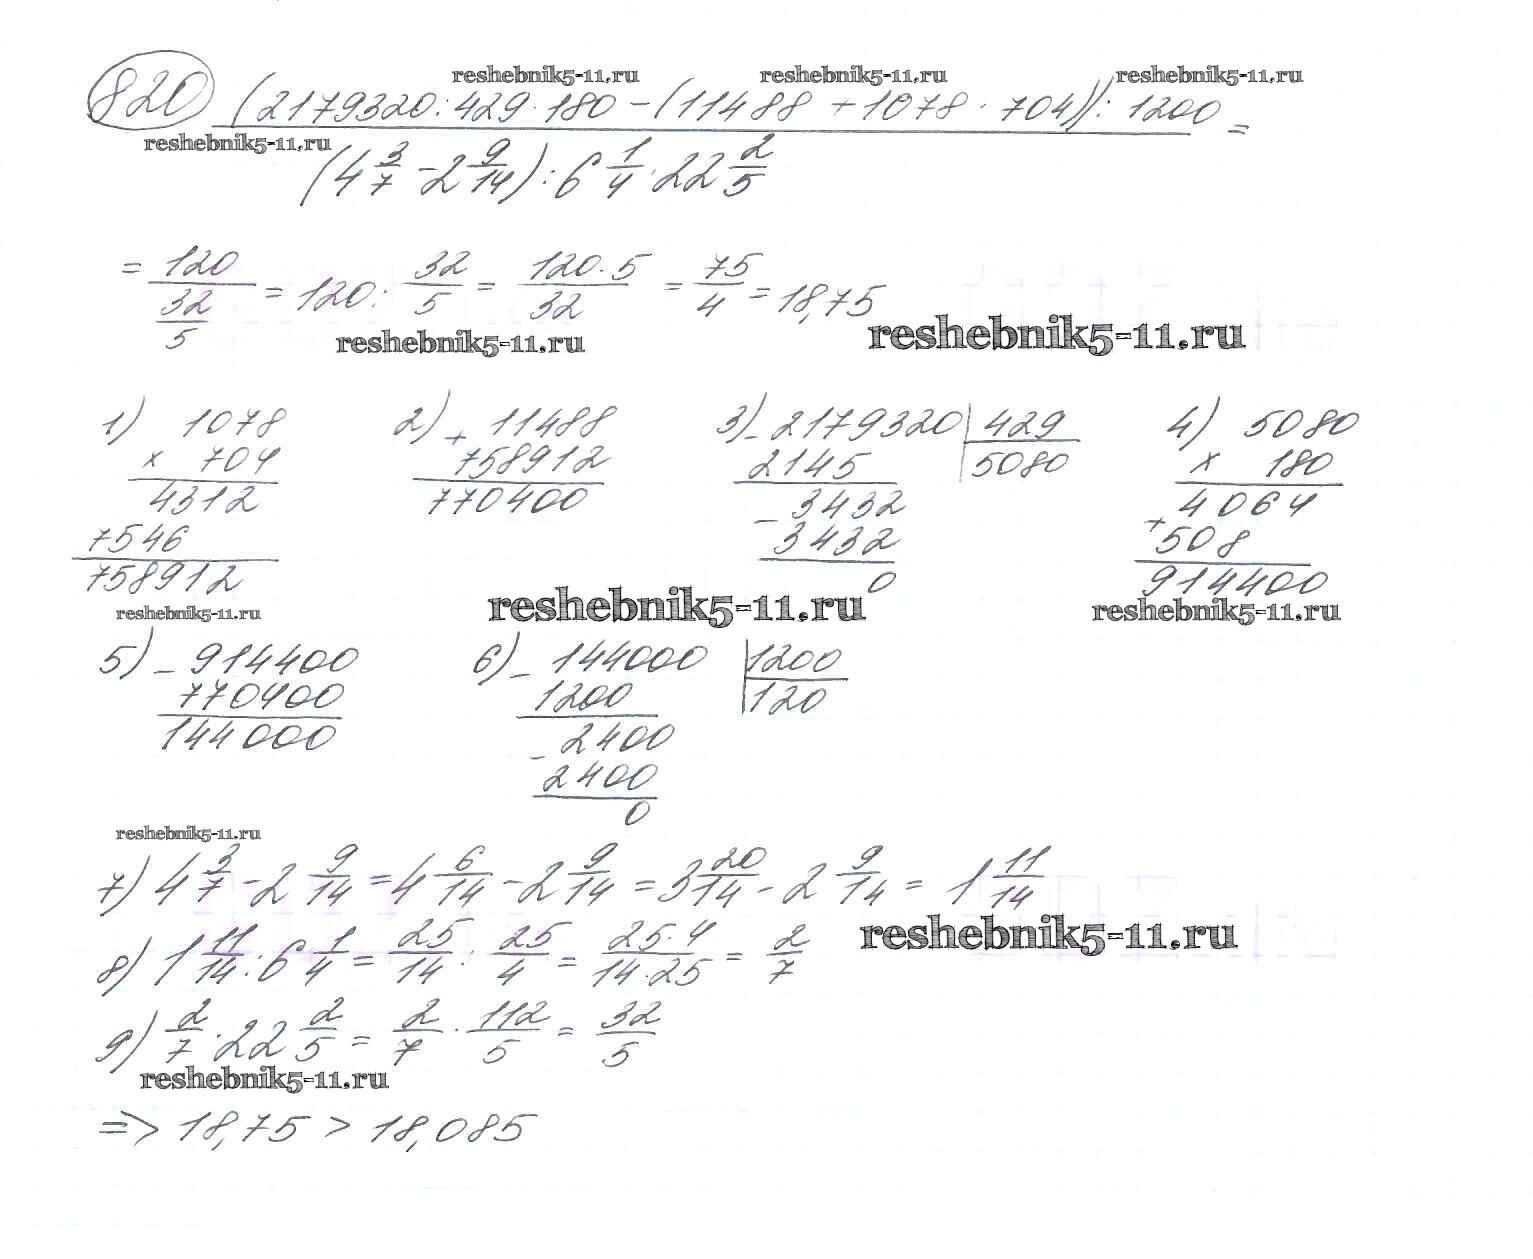 reshebnik5-11.ru reshebnik5-11.ru reshebnik5-11.ru
820 (2179320:429·180-(11488+1078·704)):1200 =
reshebnik5-11.ru
(4 3/7 - 2 9/14) : 6 1/4 · 22 2/5
= 120 / (32/5) = 120 : 32/5 = 120·5/32 = 75/4 = 18,75
reshebnik5-11.ru reshebnik5-11.ru
1) 1078
x 704
4312
7546
758912
2) + 11488
758912
770400
3) - 2179320 | 429
2145 5080
- 3432
3432
0
4) 5080
x 180
4064
+ 508
914400
reshebnik5-11.ru reshebnik5-11.ru reshebnik5-11.ru
5) - 914400
770400
144000
6) - 144000 | 1200
1200 120
- 2400
2400
0
reshebnik5-11.ru
7) 4 3/7 - 2 9/14 = 4 6/14 - 2 9/14 = 3 20/14 - 2 9/14 = 1 11/14
8) 1 11/14 : 6 1/4 = 25/14 : 25/4 = 25·4/14·25 = 2/7
reshebnik5-11.ru
9) 2/7 · 22 2/5 = 2/7 · 112/5 = 32/5
reshebnik5-11.ru
=> 18,75 > 18,085